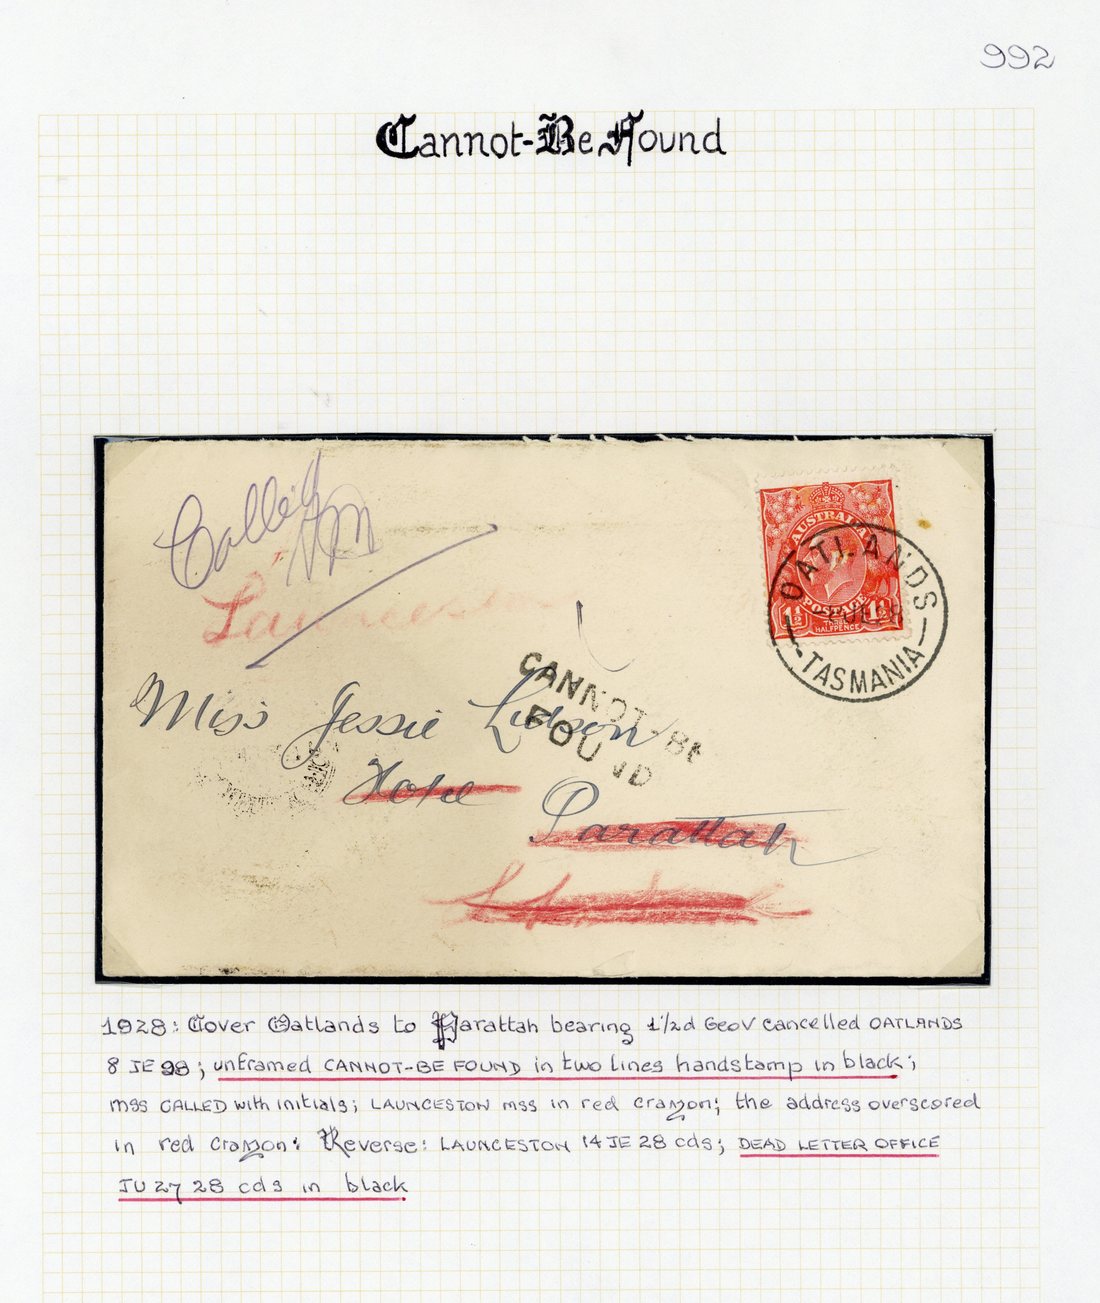 992
Cannot-Be Found
Called
Launceston
AUSTRALIA
POSTAGE
1½ 1½
THREE
HALFPENCE
OATLANDS
TASMANIA
CANNOT-BE
FOUND
Miss Jessie
Hotel
Parattah
1928: Cover Oatlands to Parattah bearing 1½d GeoV cancelled OATLANDS
8 JE 28; unframed CANNOT-BE FOUND in two lines handstamp in black;
mss CALLED with initials; LAUNCESTON mss in red crayon; the address overscored
in red crayon: Reverse: LAUNCESTON 14 JE 28 cds; DEAD LETTER OFFICE
JU 27 28 cds in black